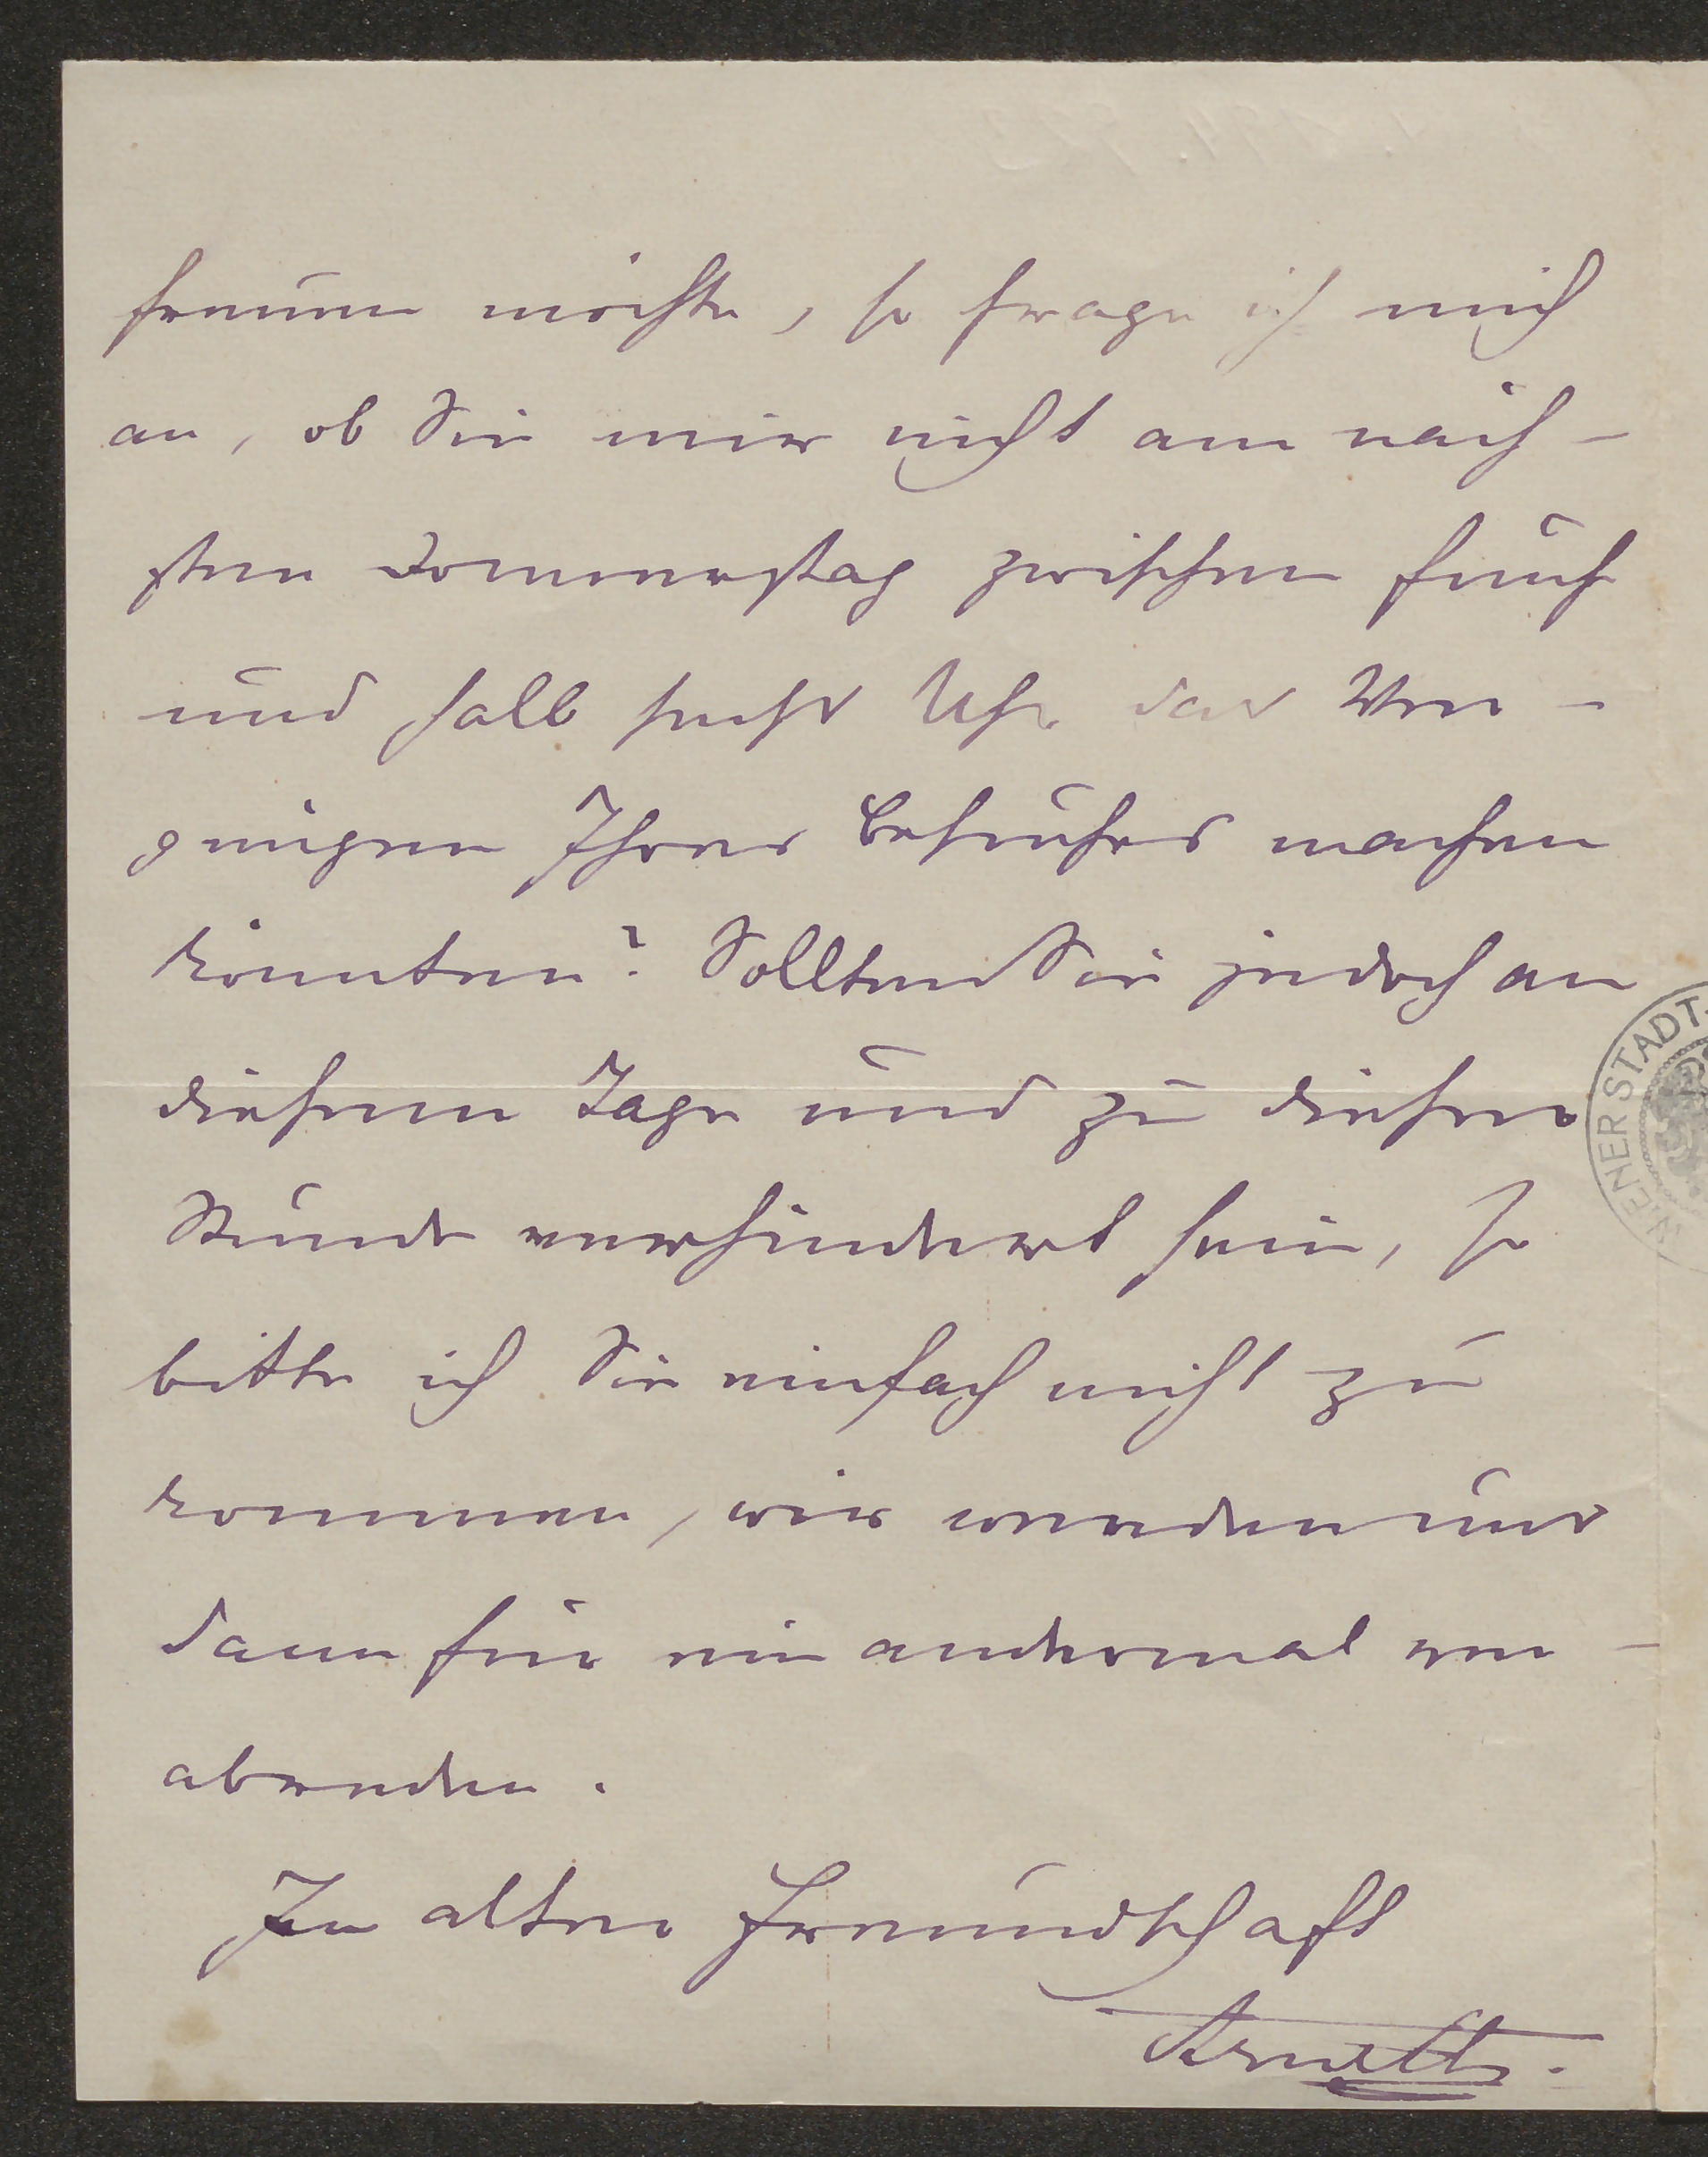 freuen möchte, so frage ich mich
an, ob Sie mir nicht am näch-
sten Donnerstag zwischen fünf
und halb sechs Uhr das Ver-
gnügen Ihres Besuches machen
könnten? Sollten Sie jedoch an
diesem Tage und zu dieser
Stunde verhindert sein, so
bitte ich Sie einfach nicht zu
kommen, wir werden uns
dann für ein andermal ver-
abreden.
In alter Freundschaft
Arneth.
WIENER STADT-